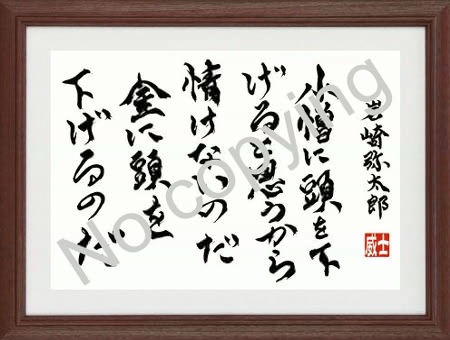 岩崎弥太郎
小僧に頭を下
げると思うから
情けないのだ
金に頭を
下げるのだ
威士
No copying